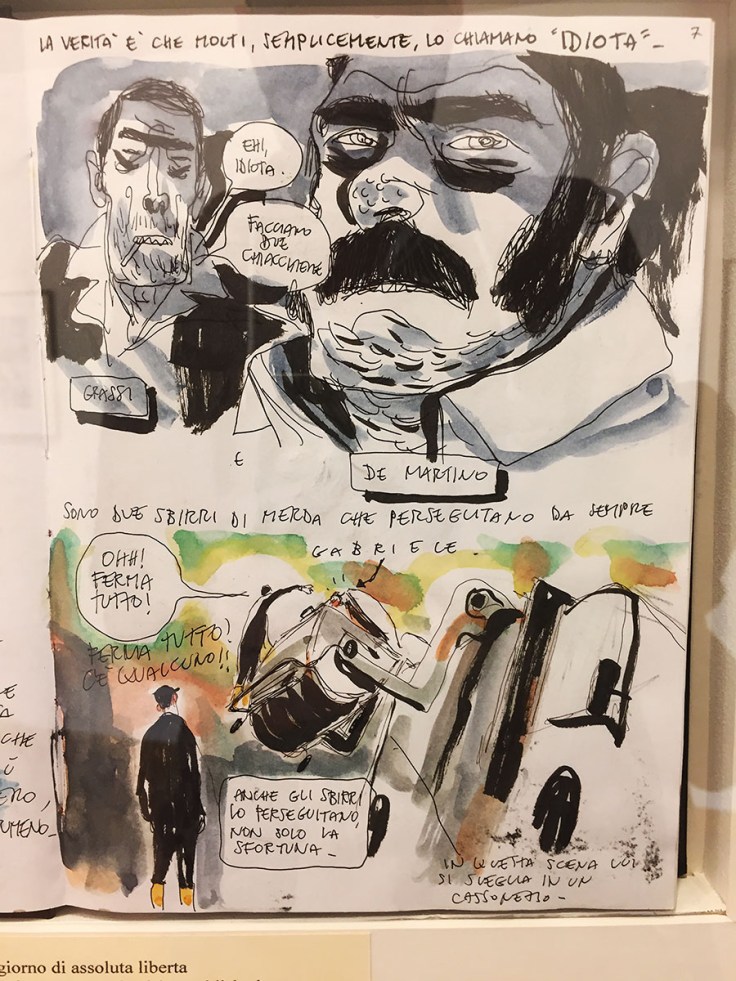 LA VERITÀ È CHE MOLTI, SEMPLICEMENTE, LO CHIAMANO "IDIOTA"_
7
EHI,
IDIOTA.
FACCIAMO
DUE
CHIACCHIERE
GRASSI
E
DE MARTINO
SONO DUE SBIRRI DI MERDA CHE PERSEGUITANO DA SEMPRE
GABRIELE
OHH!
FERMA
TUTTO!
FERMA TUTTO!
C'È QUALCUNO!!
ANCHE GLI SBIRRI
LO PERSEGUITANO,
NON SOLO LA
SFORTUNA_
IN QUESTA SCENA LUI
SI SVEGLIA IN UN
CASSONETTO_
CHE
giorno di assoluta liberta